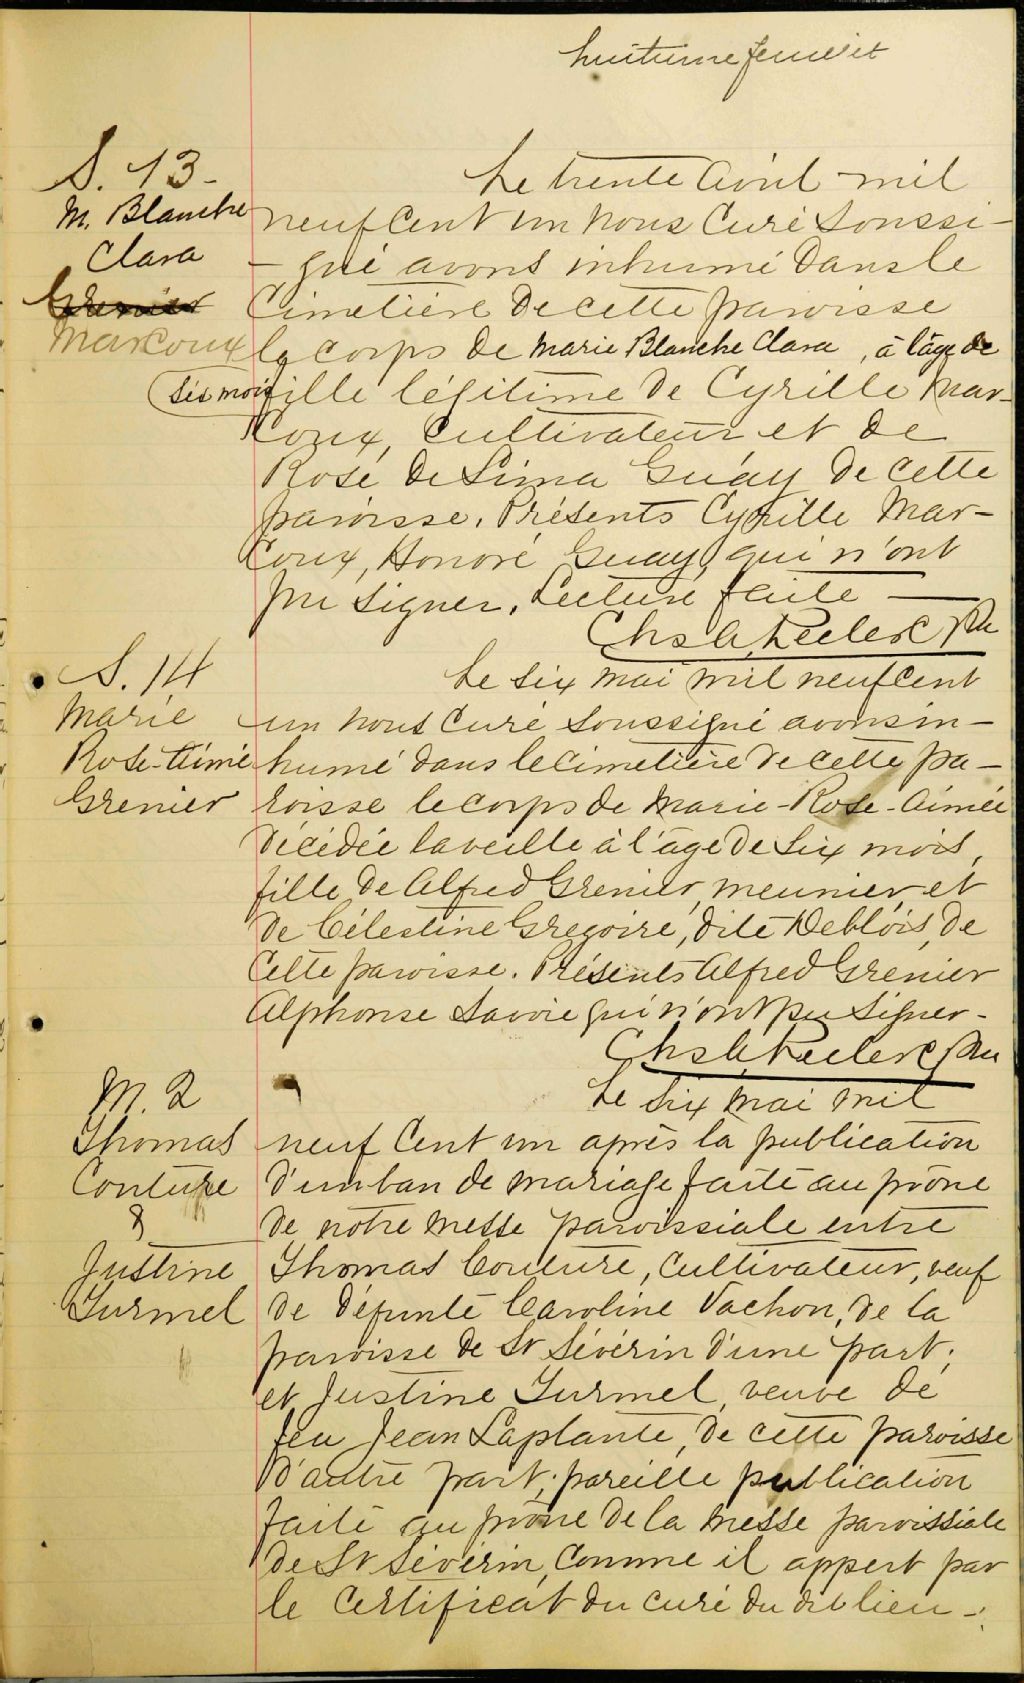 huitième feuillet
S. 13 -
M. Blanche
Clara
Grenier
Marcoux
Le trente Avril mil
neuf Cent un nous Curé Soussi-
- gné avons inhumé dans le
Cimetière de cette paroisse
le corps de Marie Blanche Clara, à l'âge de
six mois fille légitime de Cyrille Mar-
coux, Cultivateur et de
Rose de Lima Guay de cette
paroisse. Présents Cyrille Mar-
coux, Honoré Guay, qui n'ont
pu signer. Lecture faite
Chs A. Leclerc Ptre
S. 14
Marie
Rose-Aimée
Grenier
Le six mai mil neuf Cent
un nous Curé Soussigné avons in-
humé dans le Cimetière de cette pa-
roisse le corps de Marie-Rose-Aimée
décédée la veille à l'âge de six mois,
fille de Alfred Grenier, meunier, et
de Célestine Gregoire, dite Deblois, de
cette paroisse. Présents Alfred Grenier
Alphonse Savoie qui n'ont pu signer-
Chs A. Leclerc Ptre
M. 2
Thomas
Couture
&
Justine
Turmel
Le six mai mil
neuf Cent un après la publication
d'un ban de mariage faite au prône
de notre messe paroissiale entre
Thomas Couture, Cultivateur, veuf
de défunte Caroline Vachon, de la
paroisse de St Sévérin d'une part;
et Justine Turmel, veuve de
feu Jean Laplante, de cette paroisse
d'autre part; pareille publication
faite au prône de la messe paroissiale
de St Sévérin, comme il appert par
le certificat du curé du dit lieu -;